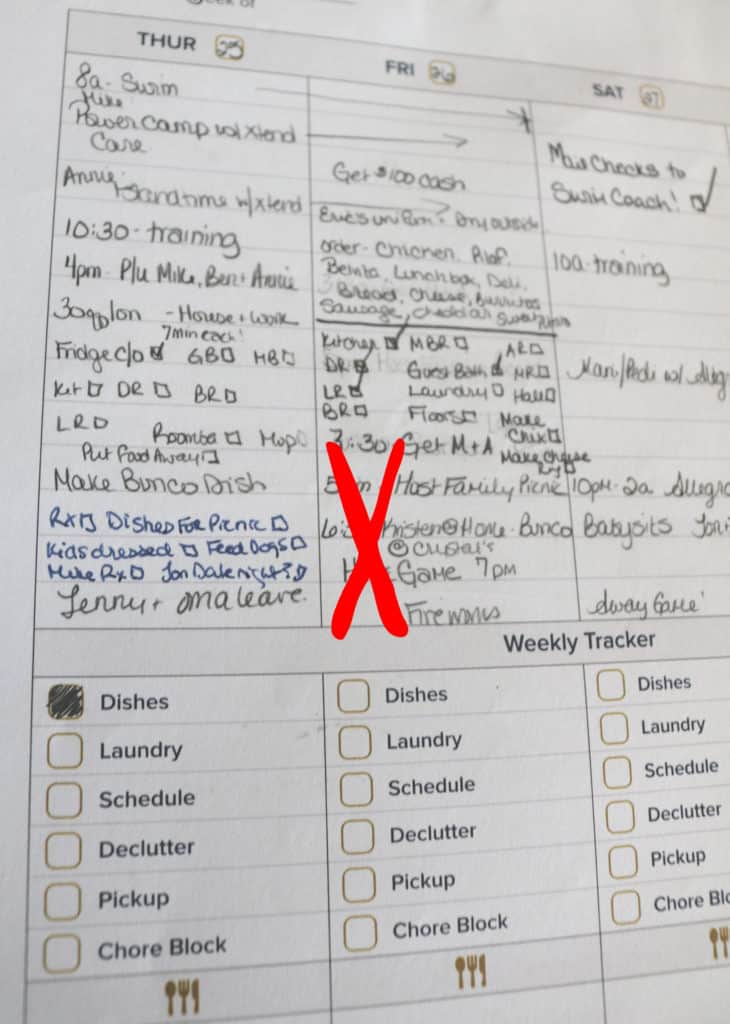 THUR 25
8a- Swim
Mike
Power Camp w/ Xtend
Care
Annie w/xtend
10:30-training
4pm- P/u Mike, Ben + Annie
- House + Work
7 min each!
Fridge c/o GB HB
Kit DR BR
LR Roomba Mop
Put Food Away
Make Bunco Dish
RX Dishes For Picnic
Kids dressed Feed Dogs
Make Rx Jon Date night?
Jenny + oma leave.
FRI 26
Get $100 cash
Eric's uniform - Dry outside
order- Chicken, Pilaf,
Lunchbox, Deli,
Bread, Cheese, Burritos
Sausage, cheddar
Kitchen MBR AR
DR Guest Bath MR
LR Laundry Hall
BR Floors Make
Chix
3:30 Get M+A Make Cheese
Host Family Picnic
Kristen @ Home- Bunco
@ Crystal's
Game 7pm
Fireworks
SAT 27
Checks to
Swim Coach!
10a-training
Mani/Pedi w/
10pm-2a Allegra
Babysits
Away Game
Weekly Tracker
Dishes
Laundry
Schedule
Declutter
Pickup
Chore Block
Dishes
Laundry
Schedule
Declutter
Pickup
Chore Block
Dishes
Laundry
Schedule
Declutter
Pickup
Chore